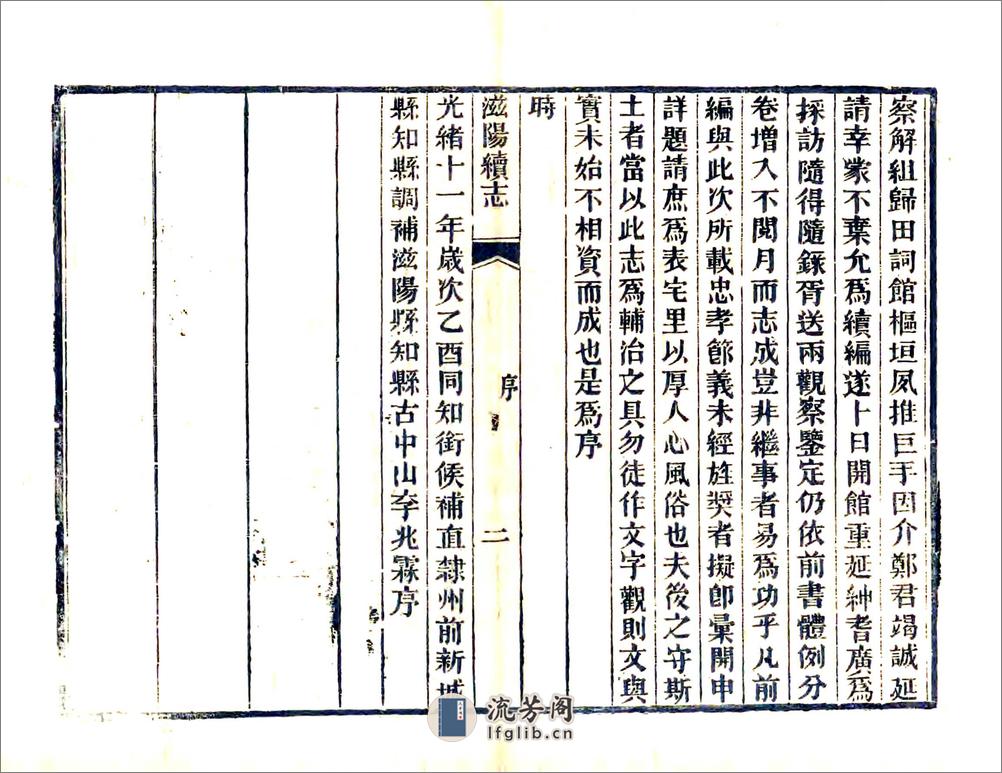 察解組歸田詞館樞垣夙推巨手因介鄭君竭誠延
請幸蒙不棄允爲續編遂卜日開館重延紳耆廣爲
採訪隨得隨錄胥送兩觀察鑒定仍依前書體例分
卷增入不閱月而志成豈非繼事者易爲功乎凡前
編與此次所載忠孝節義未經旌奬者擬卽彙開申
詳題請庶爲表宅里以厚人心風俗也夫後之守斯
土者當以此志爲輔治之具勿徒作文字觀則文與
實未始不相資而成也是爲序
時
滋陽續志 序 二
光緒十一年歲次乙酉同知銜候補直隸州前新城
縣知縣調補滋陽縣知縣古中山李兆霖序
流芳阁
lfglib.cn